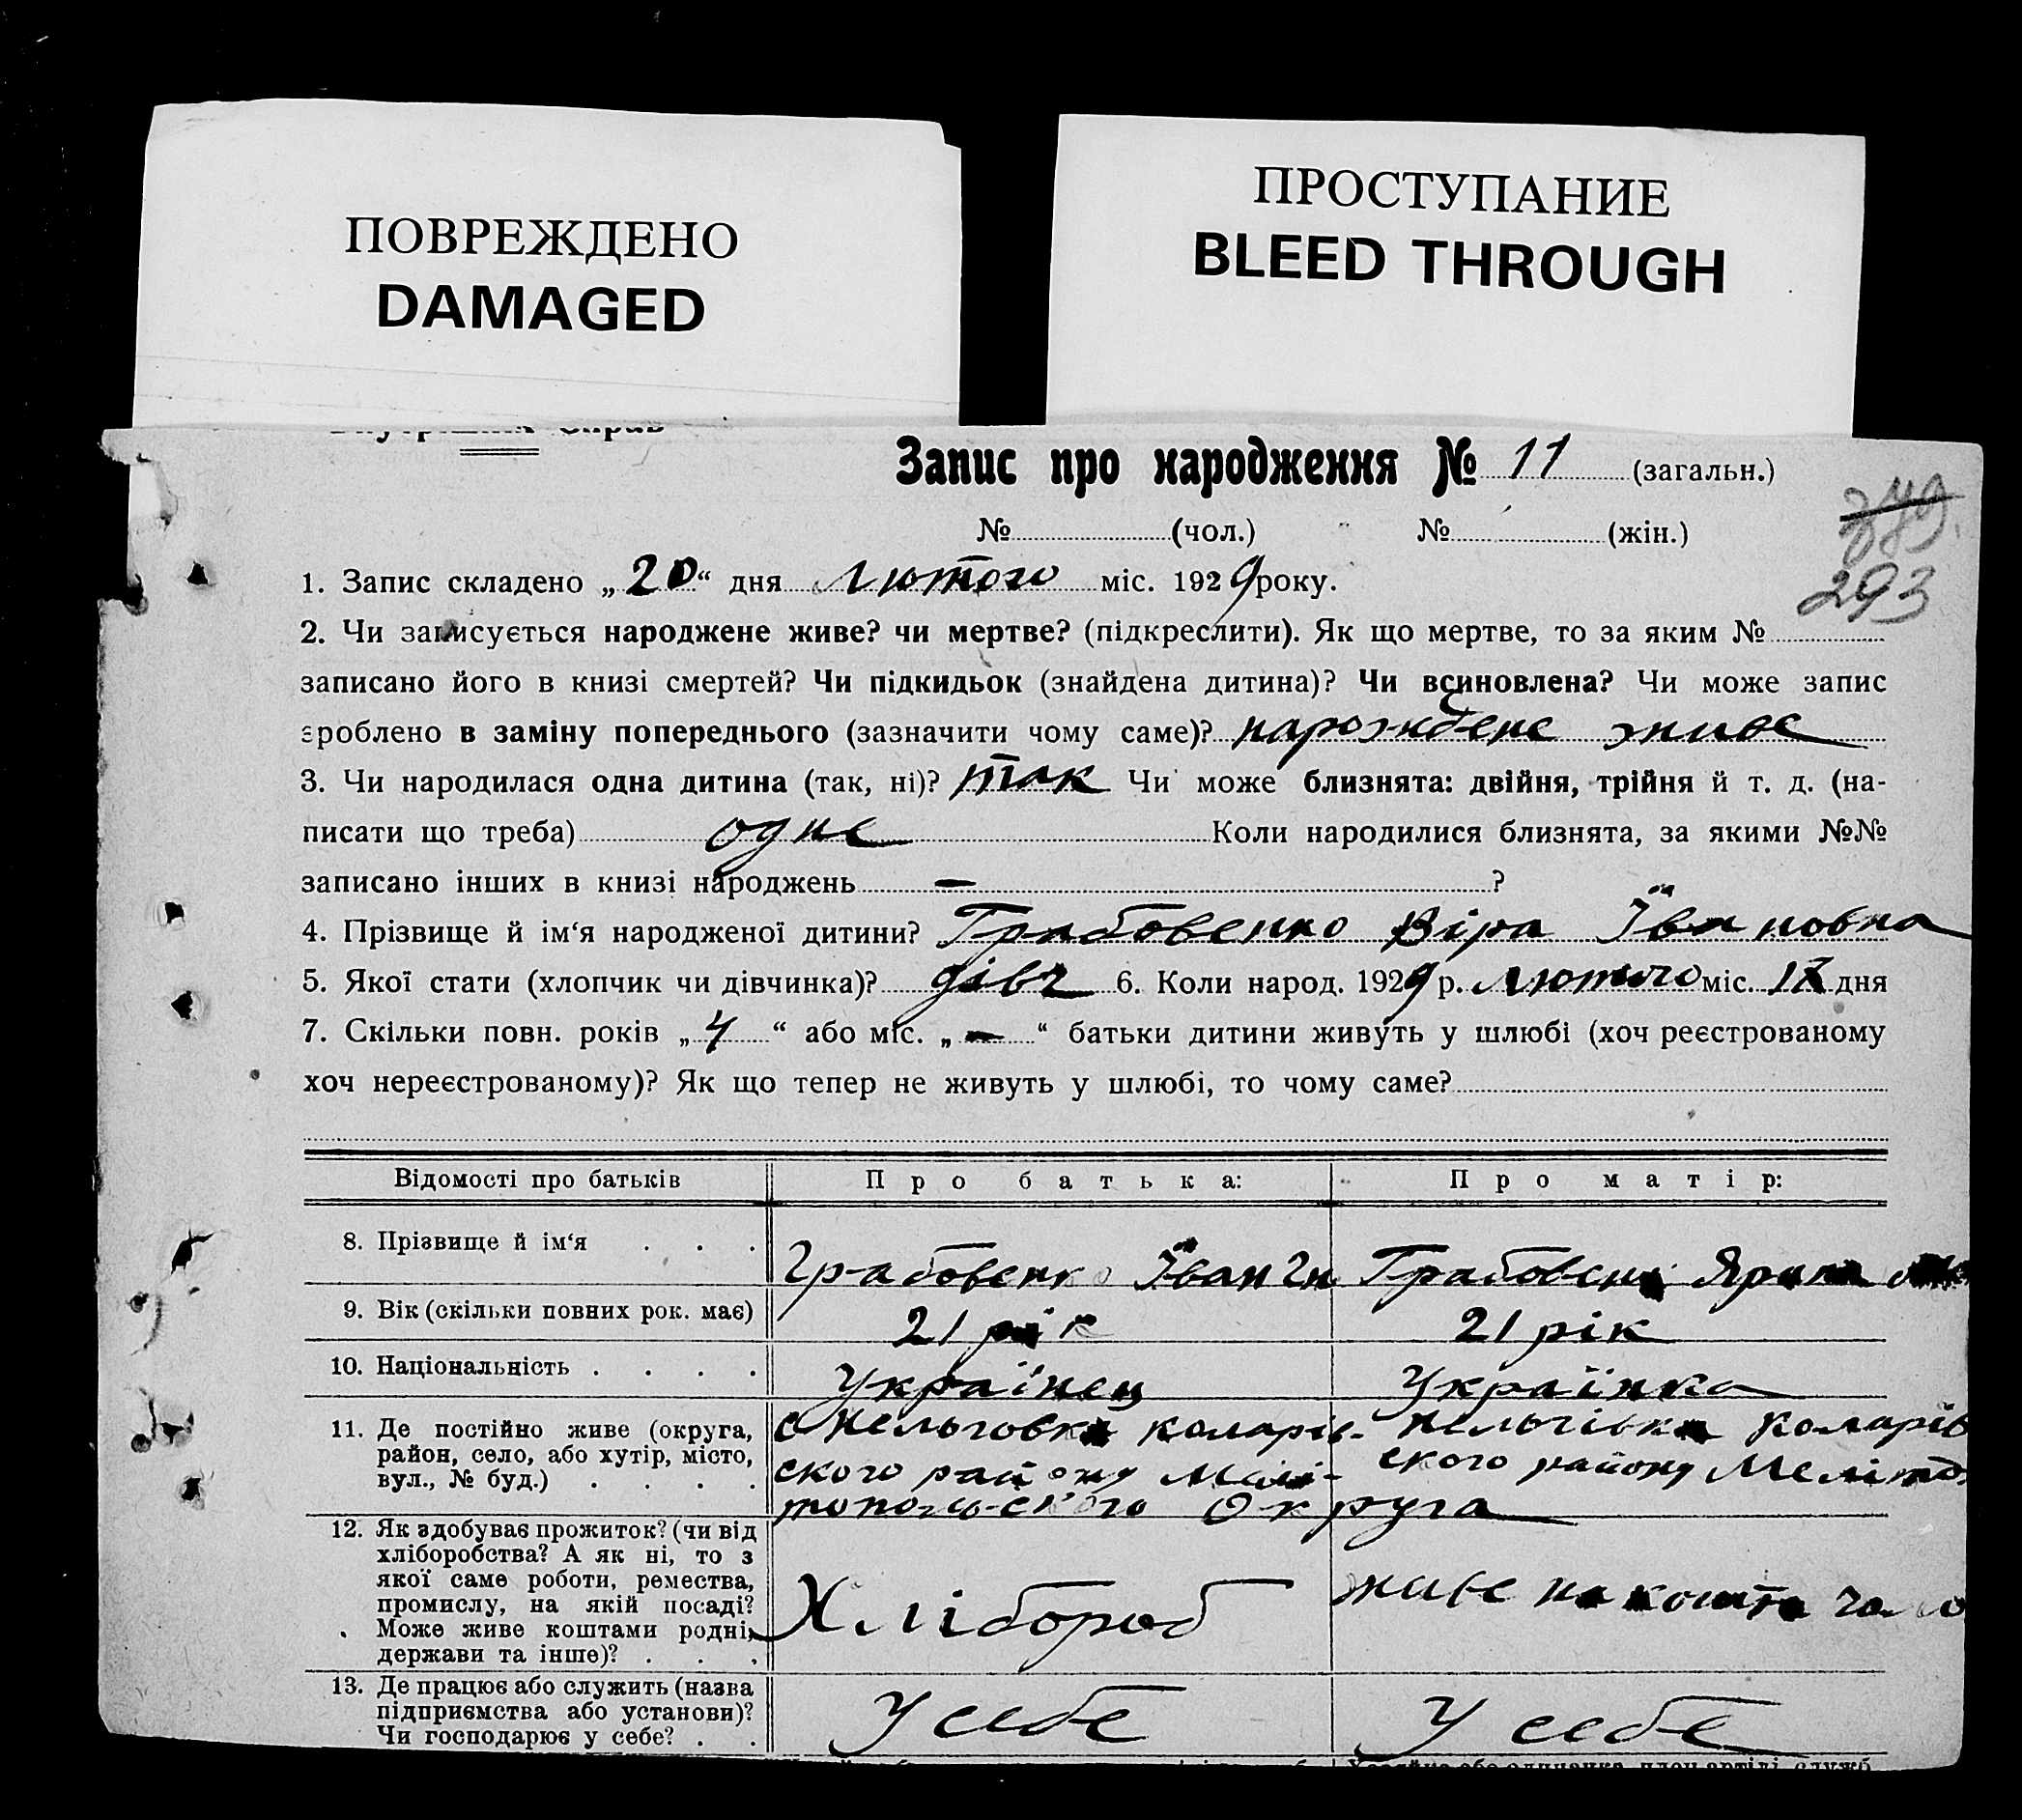 ПОВРЕЖДЕНО
DAMAGED
ПРОСТУПАНИЕ
BLEED THROUGH
Запис про народження № 11 (загальн.)
№ (чол.) № (жін.)
293
1. Запис складено „20“ дня лютого міс. 1929 року.
2. Чи записується народжене живе? чи мертве? (підкреслити). Як що мертве, то за яким №
записано його в книзі смертей? Чи підкидьок (знайдена дитина)? Чи всиновлена? Чи може запис
зроблено в заміну попереднього (зазначити чому саме)? нарождене живе
3. Чи народилася одна дитина (так, ні)? так Чи може близнята: двійня, трійня й т. д. (на-
писати що треба) одне Коли народилися близнята, за якими №№
записано інших в книзі народжень — ?
4. Прізвище й ім‘я народженої дитини? Грабовенко Віра Івановна
5. Якої стати (хлопчик чи дівчинка)? дівч 6. Коли народ. 1929 р. лютого міс. дня
7. Скільки повн. років „4“ або міс. „—“ батьки дитини живуть у шлюбі (хоч реєстрованому
хоч нереєстрованому)? Як що тепер не живуть у шлюбі, то чому саме?
Відомості про батьків Про батька: Про матір:
8. Прізвище й ім‘я . . . Грабовенко Іван Гн Грабовен Ярина
9. Вік (скільки повних рок. має) 21 рік 21 рік
10. Національність . . . . Українец Українка
11. Де постійно живе (округа,
район, село, або хутір, місто,
вул., № буд.) . . . .
с Нельговка коларів- Нельгівка Коларів
ского району Мелі- ского району Меліто
топольського Округа
12. Як здобуває прожиток? (чи від
хліборобства? А як ні, то з
якої саме роботи, ремества,
промислу, на якій посаді?
Може живе коштами родні,
держави та інше)? . . .
Хлібороб живе на кошта
13. Де працює або служить (назва
підприємства або установи)?
Чи господарює у себе? . .
У себе У себе